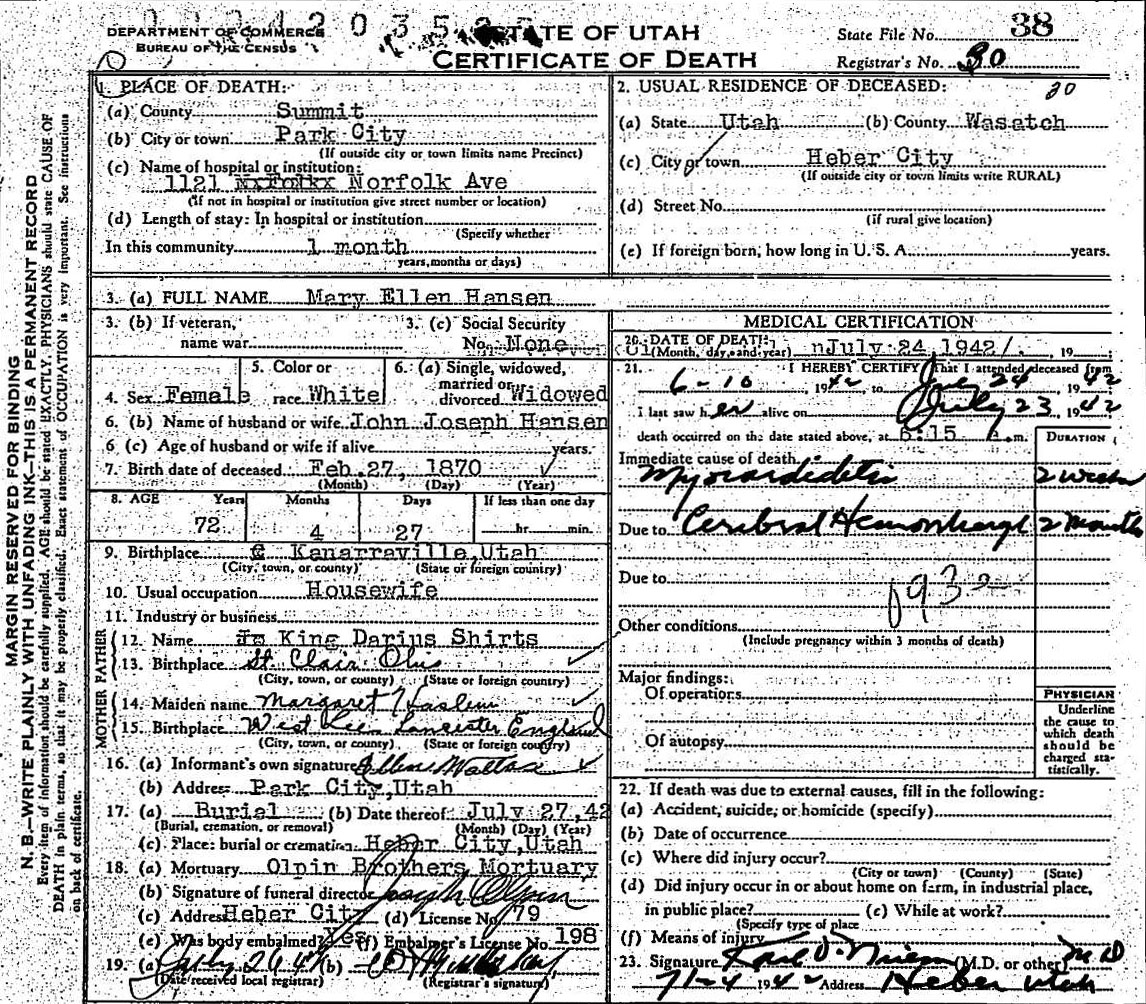 DEPARTMENT OF COMMERCE
BUREAU OF THE CENSUS
STATE OF UTAH
CERTIFICATE OF DEATH
State File No. 38
Registrar's No. 30
MARGIN RESERVED FOR BINDING
N. B.—WRITE PLAINLY WITH UNFADING INK—THIS IS A PERMANENT RECORD
Every item of information should be carefully supplied. AGE should be stated EXACTLY. PHYSICIANS should state CAUSE OF
DEATH in plain terms, so that it may be properly classified. Exact statement of OCCUPATION is very important. See instructions
on back of certificate.
1. PLACE OF DEATH:
(a) County Summit
(b) City or town Park City
(If outside city or town limits name Precinct)
(c) Name of hospital or institution:
1121 Norfolk Ave
(If not in hospital or institution give street number or location)
(d) Length of stay: In hospital or institution
(Specify whether
In this community 1 month
years, months or days)
2. USUAL RESIDENCE OF DECEASED: 30
(a) State Utah (b) County Wasatch
(c) City or town Heber City
(If outside city or town limits write RURAL)
(d) Street No.
(if rural give location)
(e) If foreign born, how long in U. S. A. years.
3. (a) FULL NAME Mary Ellen Hansen
3. (b) If veteran, name war
3. (c) Social Security No. None
4. Sex Female
5. Color or race White
6. (a) Single, widowed, married or divorced Widowed
6. (b) Name of husband or wife John Joseph Hansen
6 (c) Age of husband or wife if alive years.
7. Birth date of deceased Feb. 27, 1870
(Month) (Day) (Year)
8. AGE Years Months Days If less than one day
72 4 27 hr. min.
9. Birthplace Kanarraville, Utah
(City, town, or county) (State or foreign country)
10. Usual occupation Housewife
11. Industry or business
FATHER
12. Name King Darius Shirts
13. Birthplace St. Clair Ohio
(City, town, or county) (State or foreign country)
MOTHER
14. Maiden name Margaret Haslem
15. Birthplace West Lancaster England
(City, town, or county) (State or foreign country)
16. (a) Informant's own signature
(b) Address Park City, Utah
17. (a) Burial (b) Date thereof July 27, 42
(Burial, cremation, or removal) (Month) (Day) (Year)
(c) Place: burial or cremation Heber City, Utah
18. (a) Mortuary Olpin Brothers Mortuary
(b) Signature of funeral director Joseph Olpin
(c) Address Heber City (d) License No. 79
(e) Was body embalmed? Yes (f) Embalmer's License No. 198
19. (a) July 26 42 (b)
(Date received local registrar) (Registrar's signature)
MEDICAL CERTIFICATION
20. DATE OF DEATH: July 24 1942 , 19
(Month, day, and year)
21. I HEREBY CERTIFY That I attended deceased from
6-10 1942 to July 24 1942
I last saw her alive on July 23, 1942
death occurred on the date stated above, at 6:15 A.m.
DURATION
Immediate cause of death
Myocardidetis 2 weeks
Due to Cerebral Hemorrhage 2 Months
Due to
Other conditions
(Include pregnancy within 3 months of death)
Major findings:
Of operations
Of autopsy
PHYSICIAN
Underline
the cause to
which death
should be
charged sta-
tistically.
22. If death was due to external causes, fill in the following:
(a) Accident, suicide, or homicide (specify)
(b) Date of occurrence
(c) Where did injury occur?
(City or town) (County) (State)
(d) Did injury occur in or about home on farm, in industrial place,
in public place? (e) While at work?
(Specify type of place
(f) Means of injury
23. Signature Karl O. Nielson (M.D. or other) M D
1942 Address Heber Utah